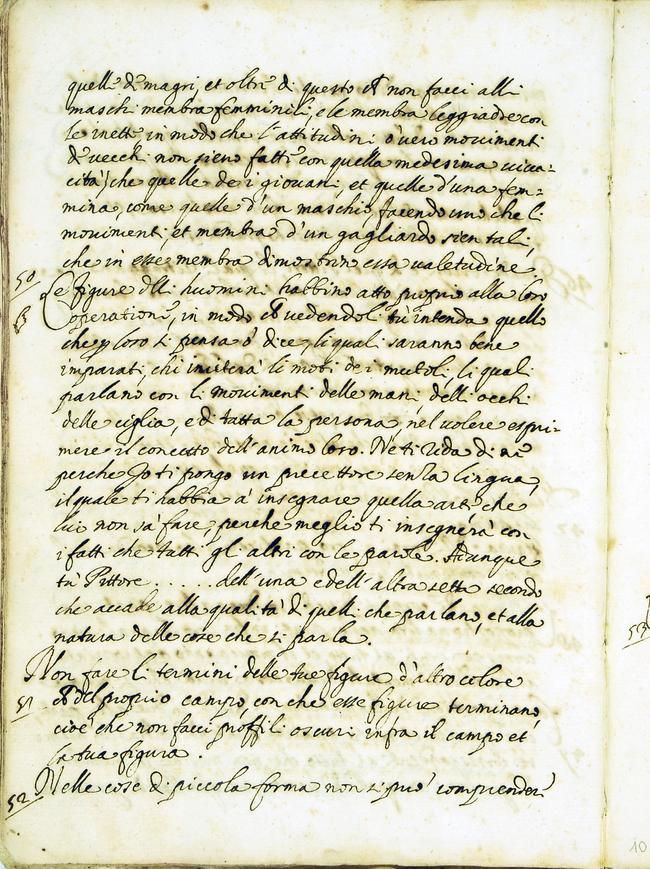 quelle de magri, et oltre di questo ch non facci alli
maschi membra femminili, e le membra leggiadre con
le inette in modo che l'attitudini ò vero movimenti
de vecchi non sieno fatte con quella medesima viva=
cità, che quelle de i giovani, et quelle d'una fem=
mina, come quelle d'un maschio, facendo che li
movimenti, et membra d'un gagliardo sien tali,
che in esse membra dimostrino essa valetudine.
50
Le figure delli huomini habbino atto proprio alla loro
operatione, in modo ch vedendoli tù intenda quello
che p loro si pensa ò dice, li quali saranno bene
imparati, chi imiterà li moti de i mutoli, li quali
parlano con li movimenti delle mani, delli occhi
delle ciglia, e di tutta la persona, nel volere espri=
mere il concetto dell'animo loro. Ne ti rida di me
perche Io ti pongo un precettore senza lingua,
il quale ti habbia à insegnare quella arte che
lui non sà fare, perche meglio ti insegnerà con
i fatti che tutti gl'altri con le parole. Adunque
tù Pittore ...... dell'una e dell'altra setta secondo
che accade alla qualità di quelli che parlano, et alla
natura delle cose che si parla.
Non fare li termini delle tue figure d'altro colore
51 ch del proprio campo, con che esse figure terminano,
cioè che non facci proffili oscuri infra il campo et
la tua figura.
52 Nelle cose di piccola forma non si può comprendere
53
10